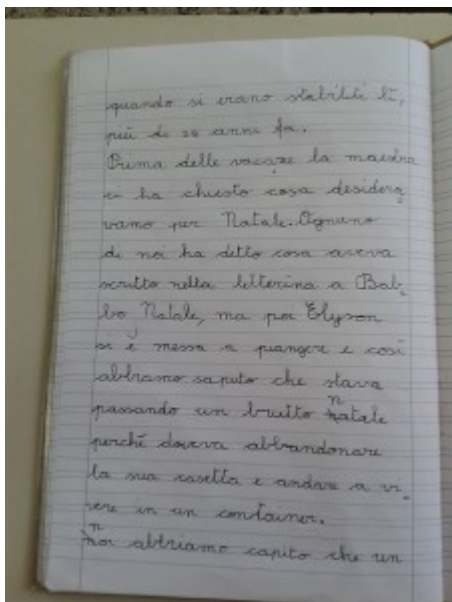 quando si erano stabiliti lì,
più di 20 anni fa.
Prima delle vacaze la maestra
ci ha chiesto cosa desidera
vamo per Natale. Ognuno
di noi ha detto cosa aveva
scritto nella letterina a Bab-
bo Natale, ma poi Elyson
si è messa a piangere e così
abbiamo saputo che stava
passando un brutto natale
perché doveva abbandonare
la sua casetta e andare a vi-
vere in un container.
noi abbiamo capito che un